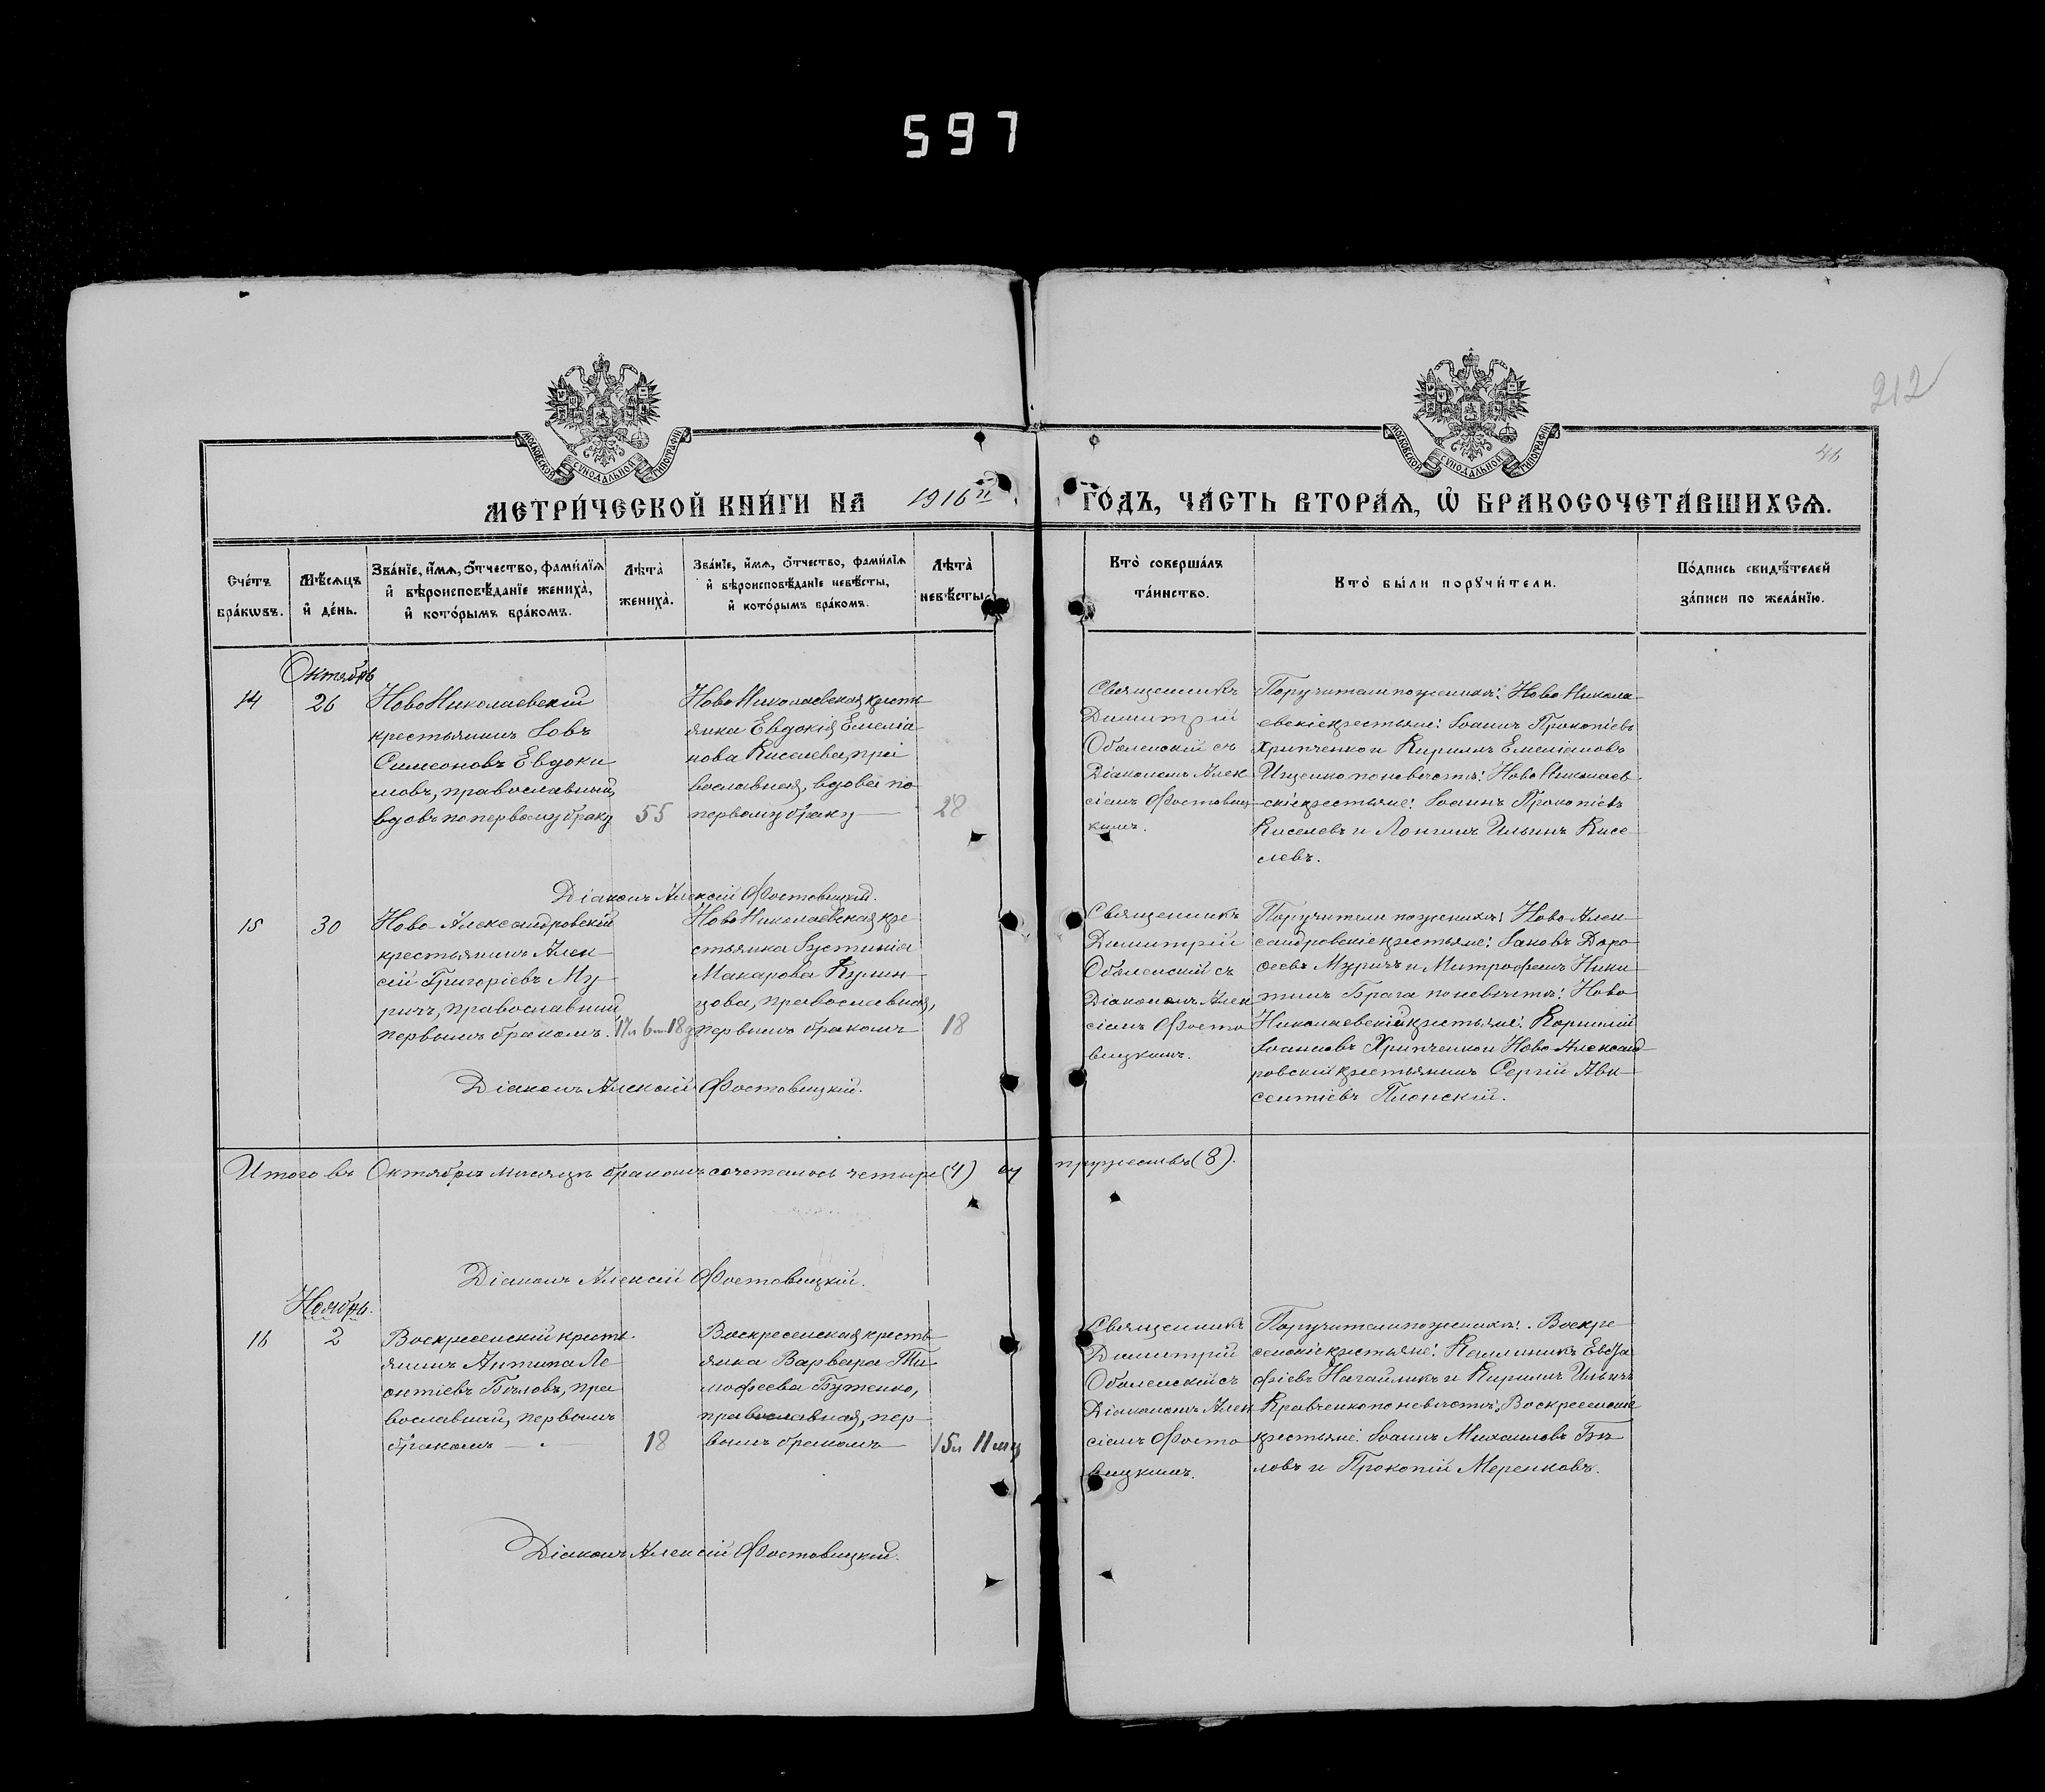 597
212
46
МОСКОВСКОЙ СѴНОДАЛЬНОЙ ТИПОГРАФІИ
МОСКОВСКОЙ СѴНОДАЛЬНОЙ ТИПОГРАФІИ
МЕТРИ́ЧЕСКОЙ КНИ́ГИ НА 1916й ГО́ДЪ, ЧА́СТЬ ВТОРА́Ѧ, Ѡ҆ БРАКОСОЧЕТА́ВШИХСѦ.
Сче́тъ
бра́кѡвъ.
Мѣ́сяцъ
и҆ де́нь.
Зва́нїе, и҆́мѧ, ѻ҆́тчество, фами́лїѧ
и҆ вѣроисповѣ́данїе жениха̀,
и҆ кото́рымъ бра́комъ.
Лѣ́та̀
жениха̀.
Зва́нїе, и҆́мѧ, ѻ҆́тчество, фами́лїѧ
и҆ вѣроисповѣ́данїе невѣ́сты,
и҆ кото́рымъ бра́комъ.
Лѣ́та̀
невѣ́сты.
Кто̀ соверша́лъ
та́инство.
Кто̀ бы́ли порꙋчи́тели.
По́дпись свидѣ́телей
за́писи по жела́нїю.
Октябрь
14
26
НовоНиколаевскій
крестьянинъ Іовъ
Симеоновъ Евдоки
мовъ, православный,
вдовъ по первому браку
55
НовоНиколаевская кресть
янка Евдокія Емеліа
нова Киселева, пра
вославная, вдова по
первому браку
28
Священникъ
Димитрій
Оболенскій съ
Діакономъ Алек
сіемъ Фостовиц
кимъ.
Поручители по женихѣ: НовоНикола
евскіе крестьяне: Іоаннъ Прокопіевъ
Хрипченко и Кириллъ Емеліановъ
Ищенко по невѣстѣ: НовоНиколаев
скіе крестьяне: Іоаннъ Прокопіевъ
Киселевъ и Лонгинъ Ильинъ Кисе
левъ.
Діаконъ Алексій Фостовицкій.
15
30
Ново-Александровскій
крестьянинъ Алек
сій Григоріевъ Му
ричъ, православный,
первымъ бракомъ.
17л 6м 18д
НовоНиколаевская кре
стьянка Іустинія
Макарова Кулин
цова, православная,
первымъ бракомъ
18
Священникъ
Димитрій
Оболенскій съ
Діакономъ Алек
сіемъ Фосто
вицкимъ.
Поручители по женихѣ: Ново Алек
сандровскіе крестьяне: Іаковъ Доро
ѳеевъ Муричъ и Митрофанъ Ники
тинъ Брага по невѣстѣ: Ново
Николаевскій крестьяне: Корнилій
Іоанновъ Хрипченко и Ново Александ
ровскій крестьянинъ Сергій Авк
сентіевъ Плонскій.
Діаконъ Алексій Фостовицкій.
Итого въ Октябрѣ мѣсяцѣ бракомъ сочеталось четыре (4) су пружествъ (8).
Діаконъ Алексій Фостовицкій.
Ноябрь.
16
2
Воскресенскій кресть
янинъ Антипа Ле
онтіевъ Бѣловъ, пра
вославный, первымъ
бракомъ
18
Воскресенская кресть
янка Варвара Ти
мофеева Бутенко,
православная, пер
вымъ бракомъ
15л 11мц
Священникъ
Димитрій
Оболенскій съ
Діакономъ Алек
сіемъ Фосто
вицкимъ.
Поручители по женихѣ: Воскре
сенскіе крестьяне: Каллиникъ Евѳра
фіевъ Нагайликъ и Кириллъ Ильичъ
Кравченко по невѣстѣ: Воскресенскіе
крестьяне: Іоаннъ Михаиловъ Бѣ
ловъ и Прокопій Меренковъ.
Діаконъ Алексій Фостовицкій.